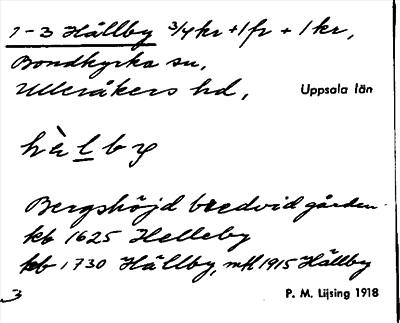 1-3 Hällby 3/4 kr + 1 fr + 1 kr,
Bondkyrka sn,
Ulleråkers hd, Uppsala län
hὲlby
Bergshöjd bredvid gården
kb 1625 Helleby
kb 1730 Hällby, mtl 1915 Hällby
3 P. M. Lijsing 1918